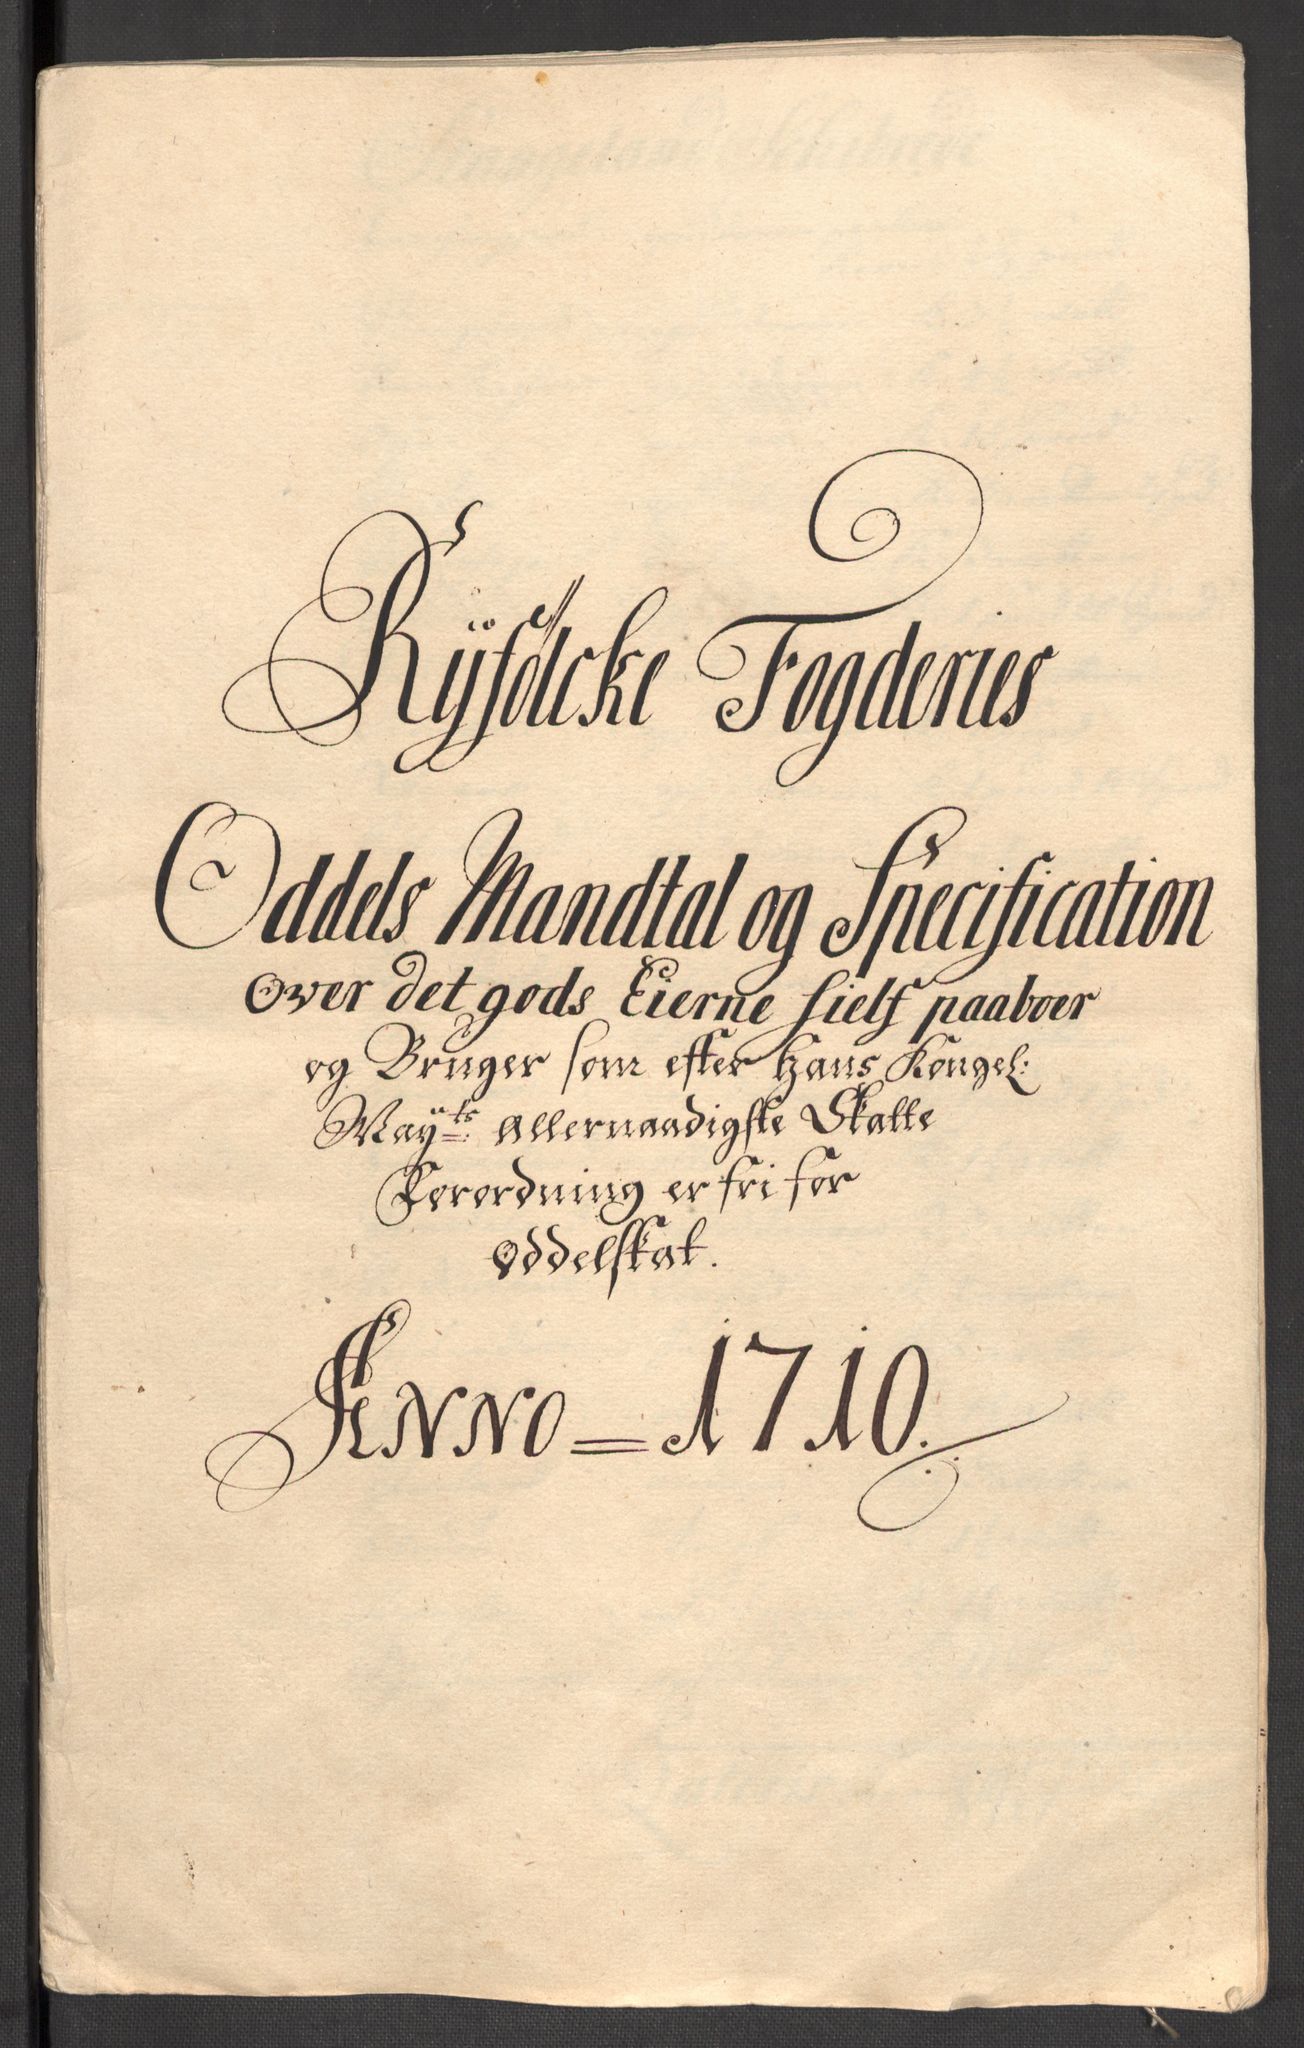 Rÿfölcke Fogderies
Oddels Mandtal og Specification
over det gods Eierne sielf paaboer
og Bruger som efter Hans Kongel:
Mayts: allernaadigste Skatte
Forordning er fri for
Oddelskat.
Anno = 1710.